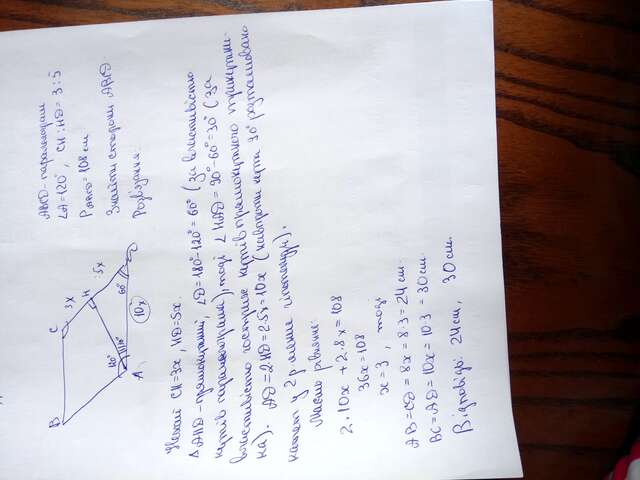 ABCD - паралелограм
∠A=120°, CH:HD=3:5
P ABCD = 108 см
Знайти сторони ABCD
Розв'язання:
B
C
3x
H
5x
120°
60°
A
10x
D
Нехай CH=3x, HD=5x.
△AHD - прямокутний, ∠D=180°-120°=60° (за властивістю
кутів паралелограма), тоді ∠HAD=90°-60°=30° (за
властивістю гострих кутів прямокутного трикутни-
ка). AD=2·HD=2·5x=10x (навпроти кута 30° розташовано
катет у 2р менше гіпотенузи).
Маємо рівняння:
2·10x+2·8x=108
36x=108
x=3, тоді
AB=CD=8x=8·3=24 см.
BC=AD=10x=10·3=30 см.
Відповідь: 24 см, 30 см.